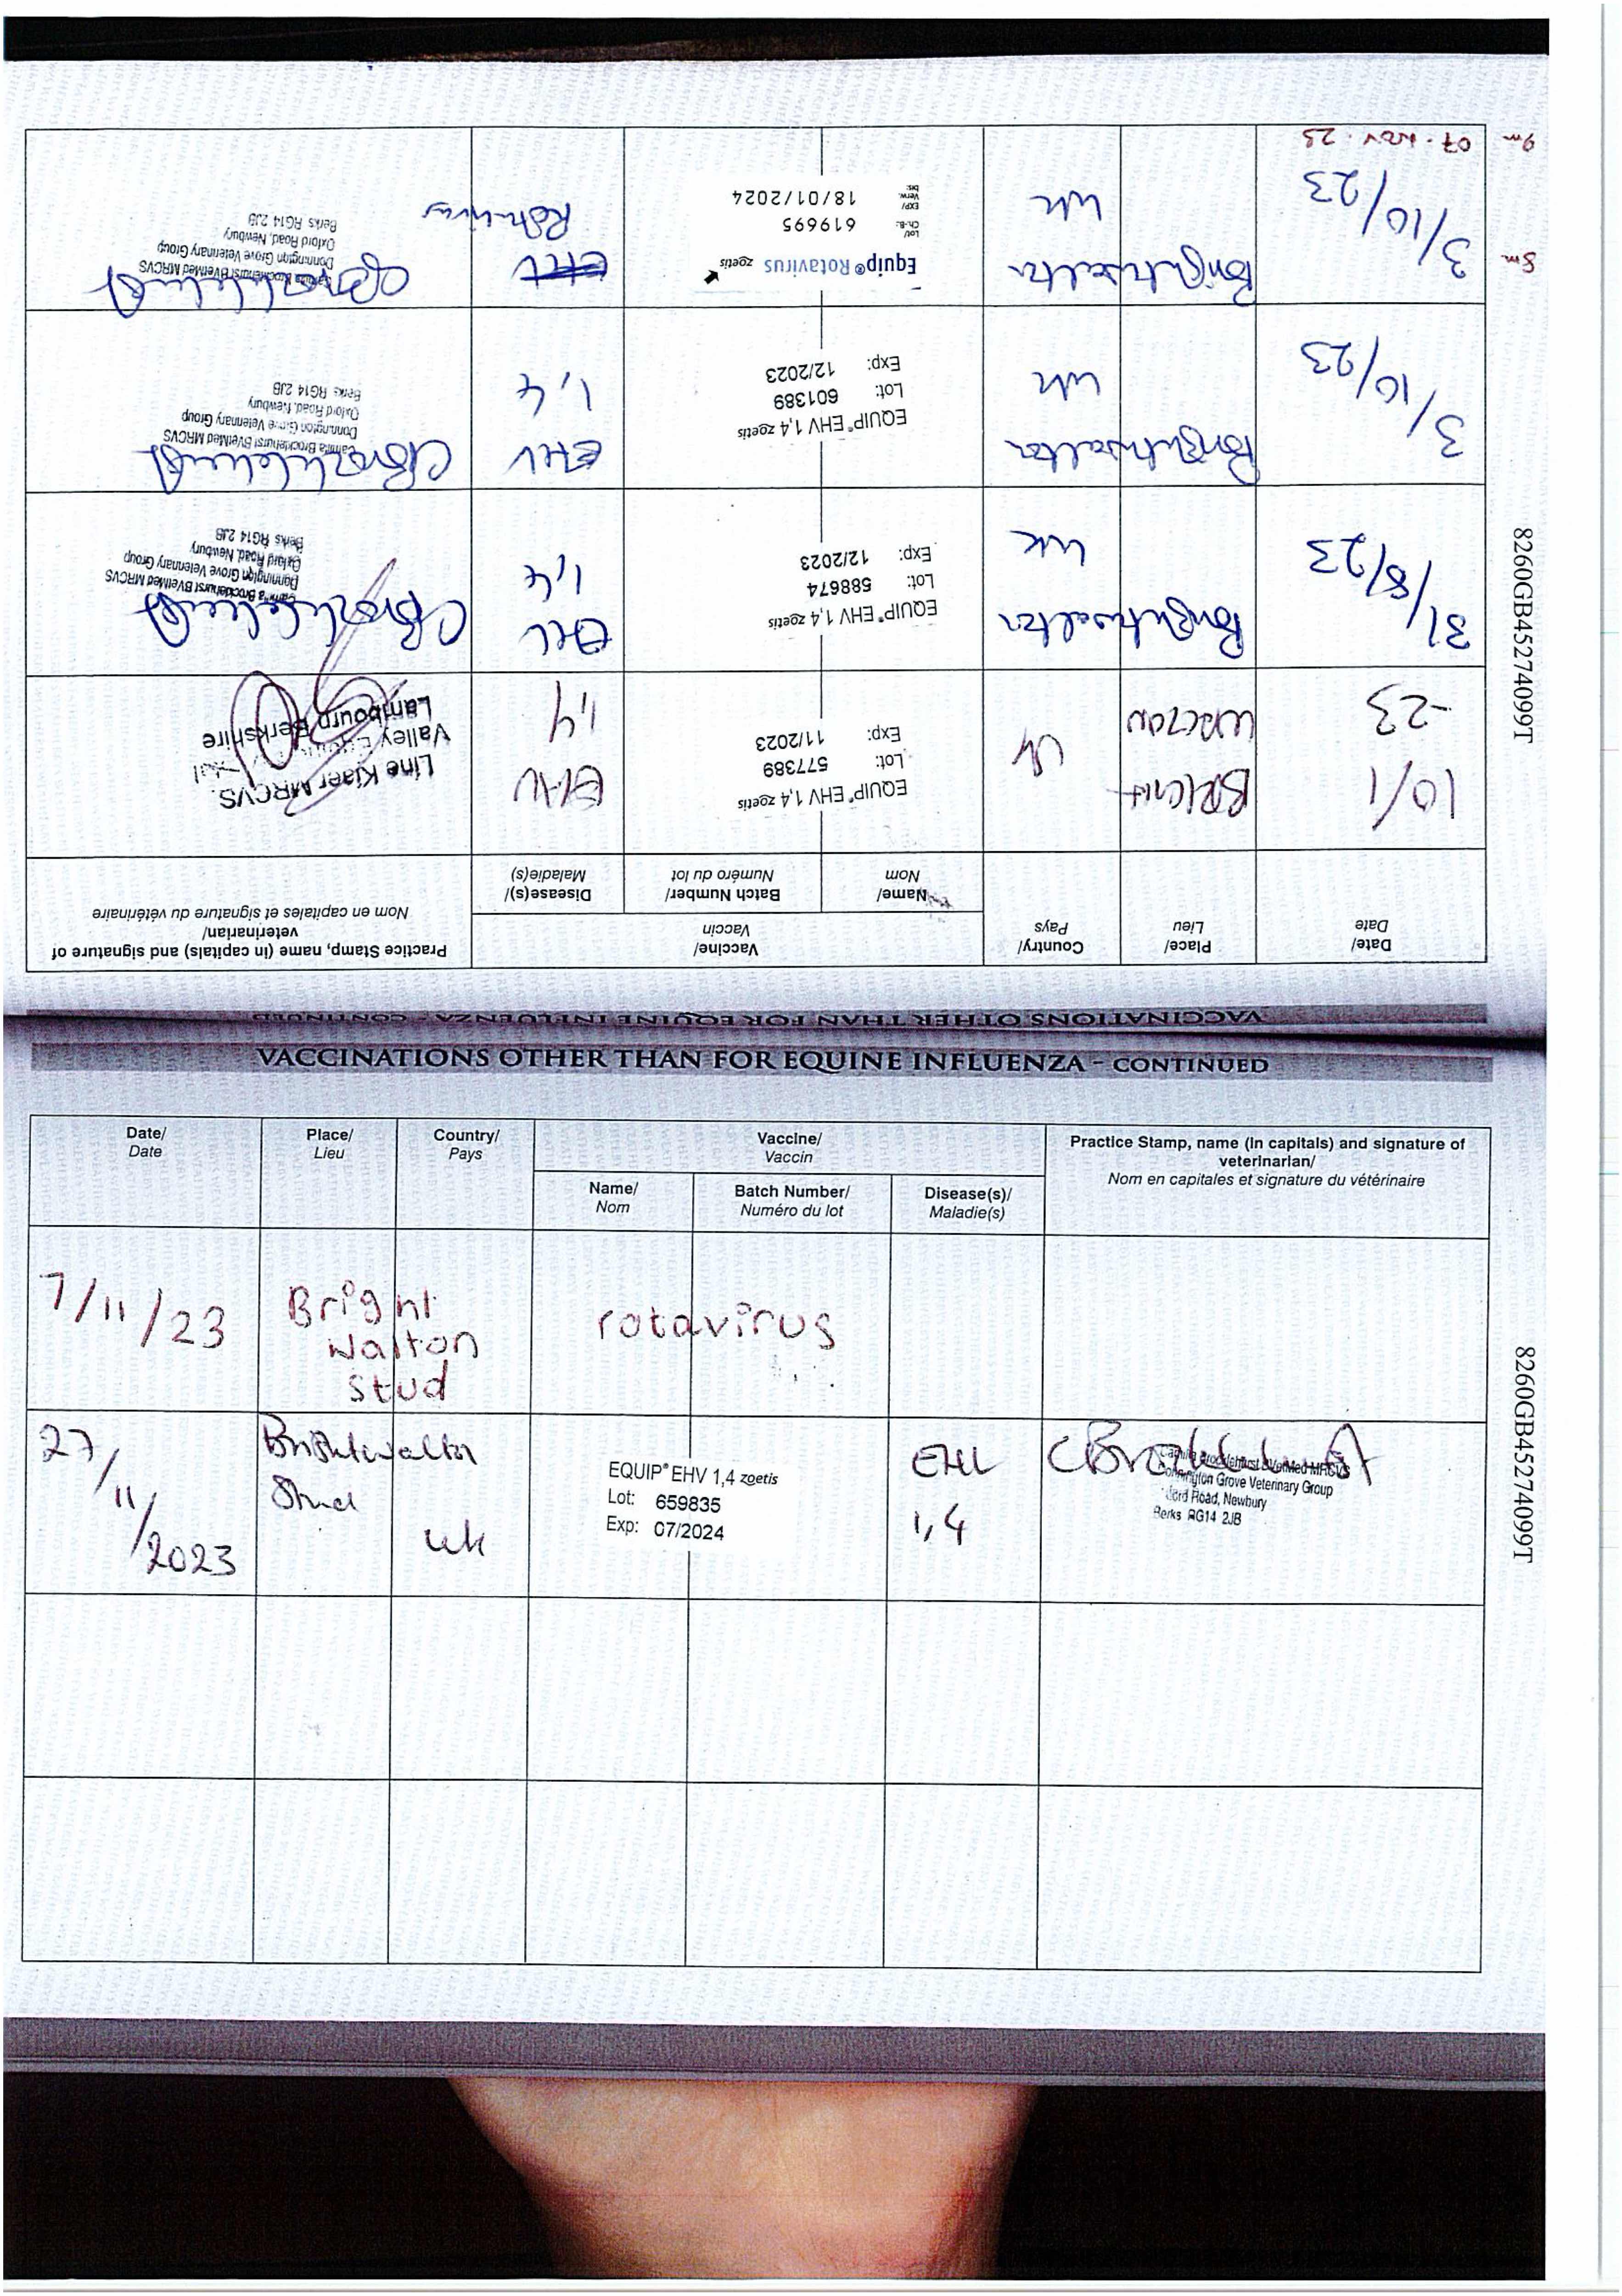 VACCINATIONS OTHER THAN FOR EQUINE INFLUENZA - CONTINUED
Date/
Date
Place/
Lieu
Country/
Pays
Vaccine/
Vaccin
Name/
Nom
Batch Number/
Numéro du lot
Disease(s)/
Maladie(s)
Practice Stamp, name (in capitals) and signature of
veterinarian/
Nom en capitales et signature du vétérinaire
10/1
-23
BRIGHT
WALTON
UK
EQUIP® EHV 1,4 zoetis
Lot: 577389
Exp: 11/2023
EHV
1,4
Line Kjaer MRCVS
Valley
Lambourn Berkshire
31/8/23
Brightwalton
UK
EQUIP® EHV 1,4 zoetis
Lot: 588674
Exp: 12/2023
EHV
1,4
Camilla Brocklehurst BVetMed MRCVS
Donnington Grove Veterinary Group
Oxford Road, Newbury
Berks RG14 2JB
3/10/23
Brightwalton
UK
EQUIP® EHV 1,4 zoetis
Lot: 601389
Exp: 12/2023
EHV
1,4
Camilla Brocklehurst BVetMed MRCVS
Donnington Grove Veterinary Group
Oxford Road, Newbury
Berks RG14 2JB
8m
3/10/23
Brightwalton
UK
Equip® Rotavirus zoetis
Lot/
Ch.-B.: 619695
EXP/
Verw.
bis: 18/01/2024
EHV
Rotavirus
Camilla Brocklehurst BVetMed MRCVS
Donnington Grove Veterinary Group
Oxford Road, Newbury
Berks RG14 2JB
9m 07. NOV. 23
8260GB45274099T
VACCINATIONS OTHER THAN FOR EQUINE INFLUENZA - CONTINUED
Date/
Date
Place/
Lieu
Country/
Pays
Vaccine/
Vaccin
Name/
Nom
Batch Number/
Numéro du lot
Disease(s)/
Maladie(s)
Practice Stamp, name (in capitals) and signature of
veterinarian/
Nom en capitales et signature du vétérinaire
7/11/23
Bright
Walton
Stud
rotavirus
27/11/2023
Brightwalton
Stud
UK
EQUIP® EHV 1,4 zoetis
Lot: 659835
Exp: 07/2024
EHV
1,4
Camilla Brocklehurst BVetMed MRCVS
Donnington Grove Veterinary Group
Oxford Road, Newbury
Berks RG14 2JB
8260GB45274099T